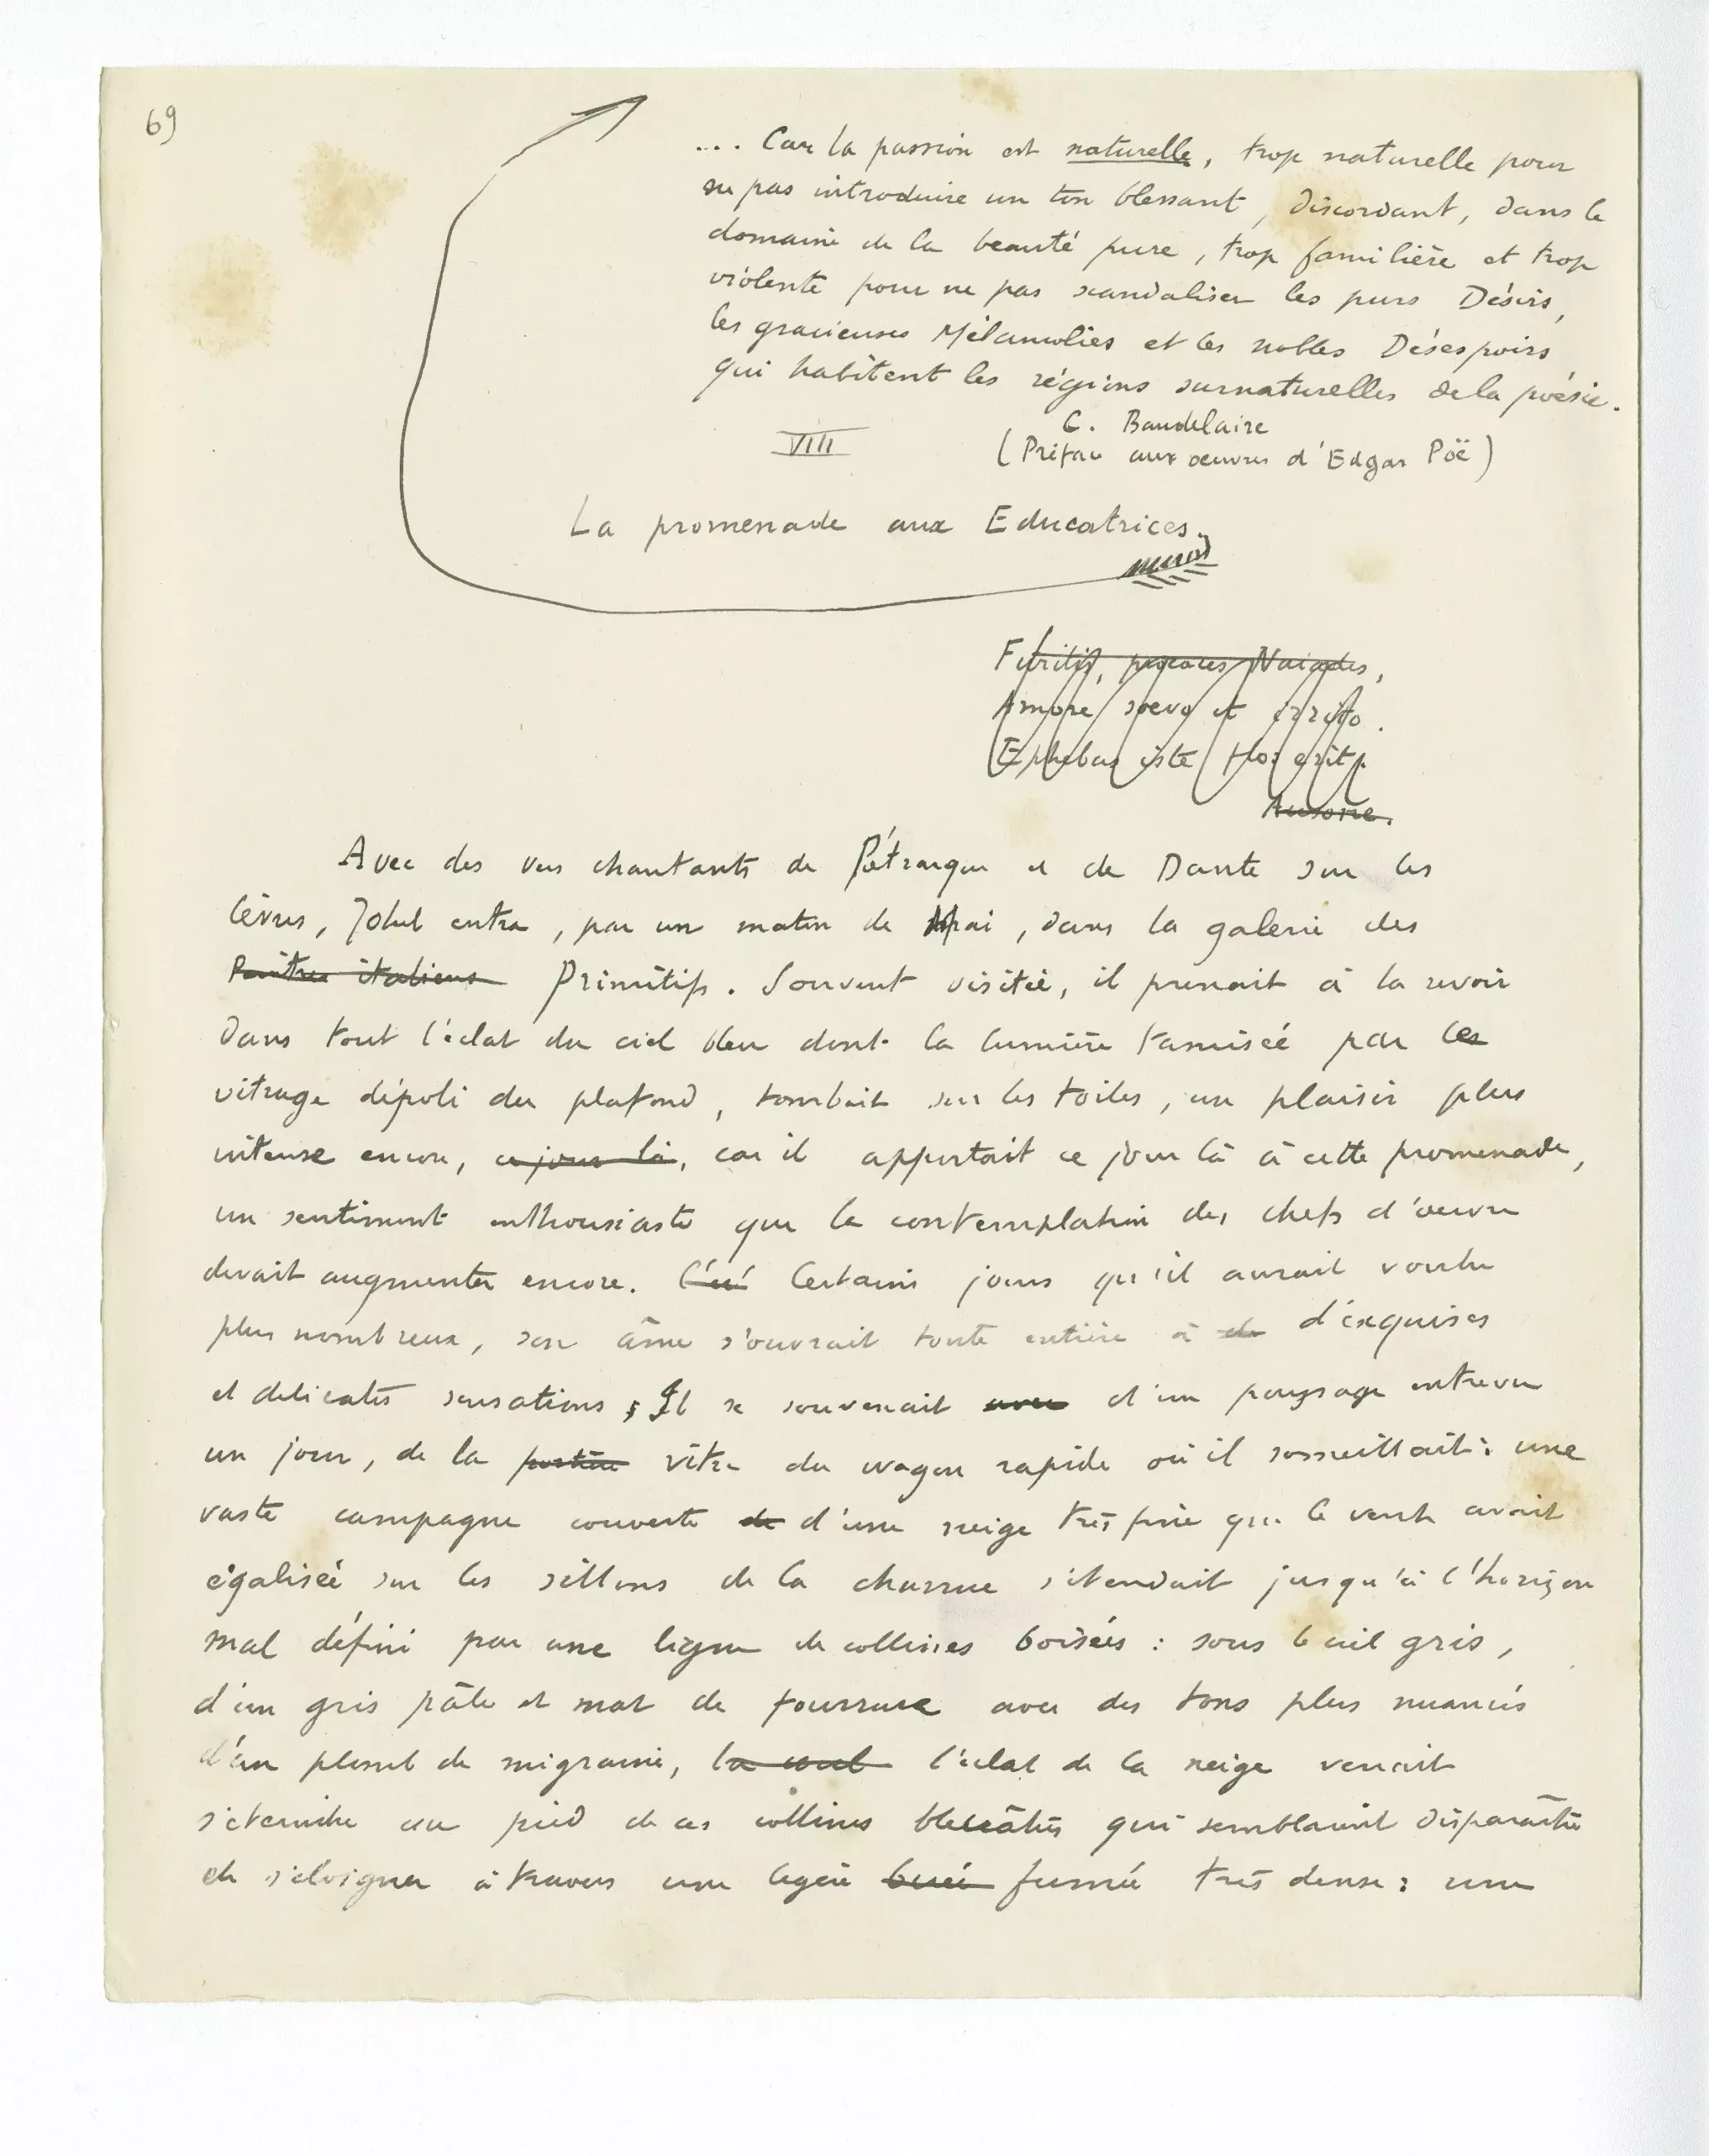 69
... Car la passion est naturelle, trop naturelle pour
ne pas introduire un ton blessant, discordant, dans le
domaine de la beauté pure, trop familière et trop
violente pour ne pas scandaliser les purs Désirs,
les gracieuses Mélancolies et les nobles Désespoirs
qui habitent les régions surnaturelles de la poésie.
C. Baudelaire
VIII
(Préface aux oeuvres d'Edgar Poë)
La promenade aux Educatrices.
Furitis, procaces Naiades,
Amore saevo et irrito.
Ephebus iste flos erit.
Ausone.
Avec des vers chantants de Pétrarque et de Dante sur les
lèvres, entra, par un matin de Mai, dans la galerie des
Peintres italiens Primitifs. Souvent visitée, il prenait à la revoir
dans tout l'éclat du ciel bleu dont la lumière tamisée par les
vitrage dépoli du plafond, tombait sur les toiles, un plaisir plus
intense encore, ce jour là, car il apportait ce jour là à cette promenade,
un sentiment enthousiaste que la contemplation des chefs d'oeuvre
devait augmenter encore. Certains jours qu'il aurait voulu
plus nombreux, son âme s'ouvrait toute entière à de d'exquises
et délicates sensations; Il se souvenait avec d'un paysage entrevu
un jour, de la portière vitre du wagon rapide où il sommeillait: une
vaste campagne couverte de d'une neige très fine que le vent avait
égalisée sur les sillons de la charrue s'étendait jusqu'à l'horizon
mal défini par une ligne de collines boisées : sous le ciel gris,
d'un gris pâle et mat de fourrure avec des tons plus nuancés
d'un plumet de migraine, la l'éclat de la neige venait
s'éteindre au pied de ces collines bleuâtres qui semblaient disparaître
et s'éloigner à travers une légère buée fumée très dense : une